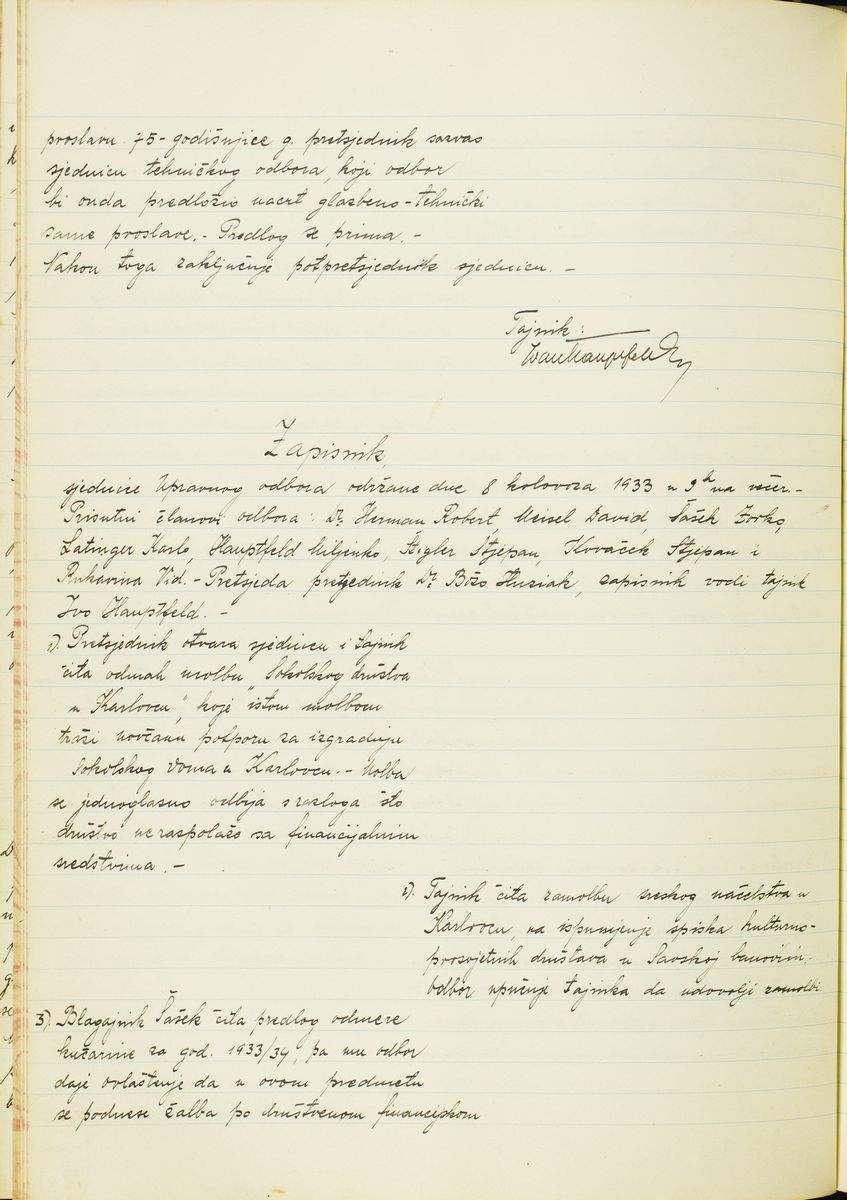 proslavu 75-godišnjice g. pretsjednik sazvao
sjednicu tehničkog odbora, koji odbor
bi onda predložio nacrt glazbeno-tehnički
same proslave.- Predlog se prima.-
Nakon toga zaključuje potpretsjednik sjednicu. -
Tajnik:
Zapisnik,
sjednice Upravnog odbora održane dne 8 kolovoza 1933 u 9h na večer.-
Prisutni članovi odbora: Dr. Herman Robert, Meisel David, Šašek Zorko,
Latinger Karlo, Hauptfeld Miljenko, Štigler Stjepan, Kovaček Stjepan i
Rukavina Vid.- Pretsjeda pretsjednik Dr. Božo Husiak, zapisnik vodi tajnik
Ivo Hauptfeld. -
1). Pretsjednik otvara sjednicu i tajnik
čita odmah molbu "Sokolskog društva
u Karlovcu", koje istom molbom
traži novčanu potporu za izgradnju
Sokolskog doma u Karlovcu.- Molba
se jednoglasno odbija s razloga što
društvo ne raspolaže sa financijalnim
sredstvima. -
2). Tajnik čita zamolbu sreskog načelstva u
Karlovcu, na ispunjenje spiska kulturno-
prosvjetnih društava u Savskoj banovini.
Odbor upućuje tajnika da udovolji zamolbi.
3). Blagajnik Šašek čita predlog odmere
kućarine za god. 1933/34, pa mu odbor
daje ovlaštenje da u ovom predmetu
se podnese žalba po društvenom financijskom